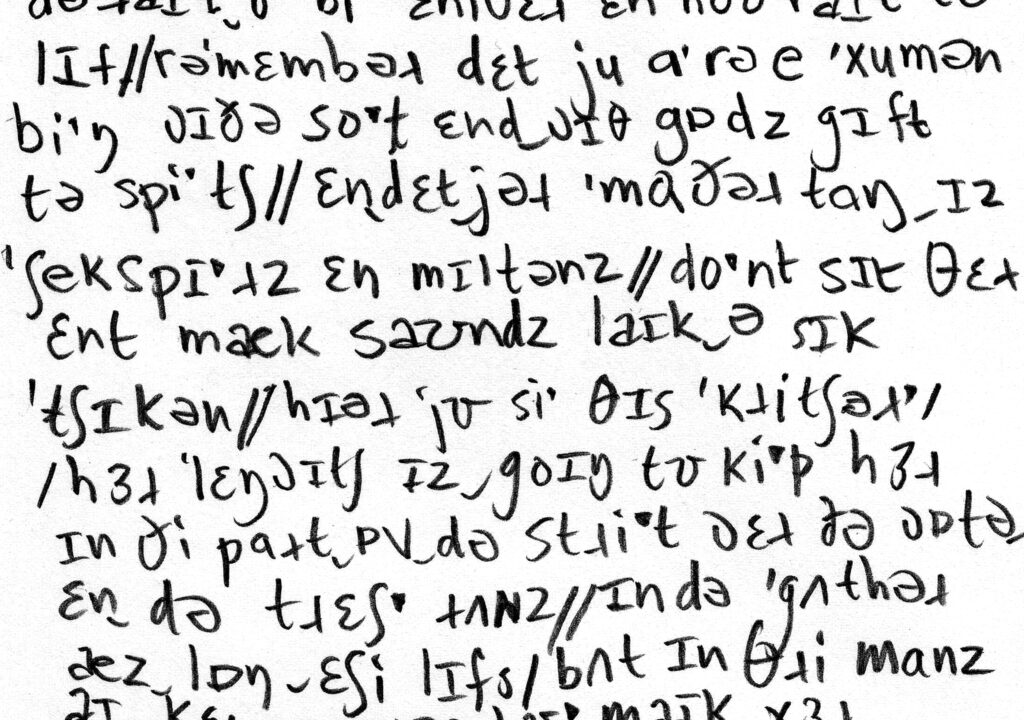 lɪf//rəˈmɛmbəɹ dɛt ju ɑˈrəe ˈxumən
biˈŋ ʋɪðə soˑt ɛnd‿ʋɪθ gɒdz gɪft
tə spiˑtʃ//ɛn̩dɛtjəɹ ˈmɑðəɹ taŋ‿ɪz
ˈʃekspɪˑɹz ɛn mɪltənz//doˑnt sɪt θɛɹ
ɛnt mæk saʊndz laɪk‿ə sɪk
ˈtʃɪkən//hɪəɹ ˈjʊ siˑ θɪs ˈkɹitʃəɹˑ/
/hɜɹ ˈlɛŋʋɪtʃ ɪz‿goɪŋ tʊ kiˑp hɜɹ
ɪn ði paɹt‿ɒv‿də stɹiˑt ʋɛɹ ðə ʋɒtə
ɛn̩ də tɹɛʃˑ ɹʌnz//ɪn də ˈgʌthəɹ
æz‿lɒŋ‿ɛʃi lɪfs/bʌt ɪn θɹi manz